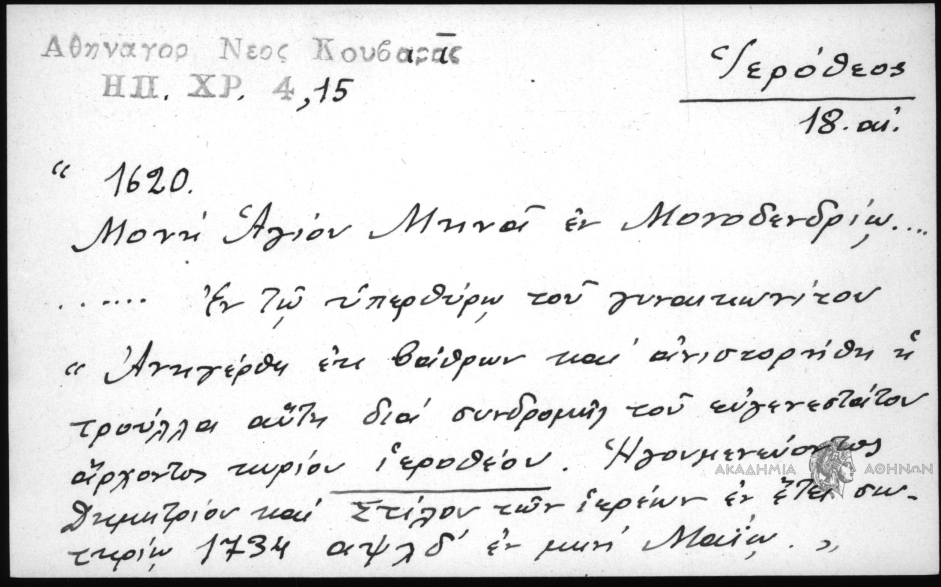 Αθηναγορ Νεος Κουβαρᾶς
ΗΠ. ΧΡ. 4,15
Ἱερόθεος
18. αἰ.
“ 1620.
Μονή Ἁγίου Μηνᾶ ἐν Μονοδενδρίῳ....
...... Ἐν τῷ ὑπερθύρῳ τοῦ γυναικωνίτου
“ Ἀνηγέρθη ἐκ βάθρων καί ἀνιστορήθη ἡ
τρούλλα αὕτη διά συνδρομῆς τοῦ εὐγενεστάτου
ἄρχοντος κυρίου ἱεροθέου. Ἡγουμενεύοντος
ΑΚΑΔΗΜΙΑ ΑΘΗΝΩΝ
Δημητρίου καί Στίλου τῶν ἱερέων ἐν ἔτει σω-
τηρίῳ 1734 αψλδ' ἐν μηνί Μαΐῳ. „